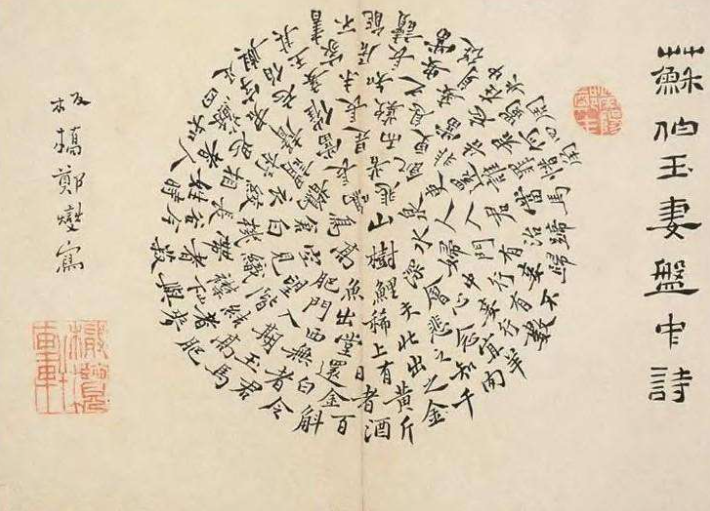 蘇伯玉妻盤中詩
山樹高
鳥鳴悲
泉水深
鯉魚肥
空倉雀
常苦飢
吏人婦
會夫稀
出門望
見白衣
謂當是
而更非
還入門
中心悲
北上堂
西入階
急機絞
杼聲催
長歎息
當語誰
君有行
妾念之
出有日
還無期
結巾帶
長相思
君忘妾
未知之
妾忘君
罪當治
妾有行
宜知之
黃者金
白者玉
高者山
下者谷
姓者蘇
字伯玉
家居長安身在蜀
何惜馬蹄歸不數
羊肉千斤酒百斛
令君馬肥麥與粟
今時人
知四足
與其書
不能讀
當從中央周四角
板橋鄭燮寫